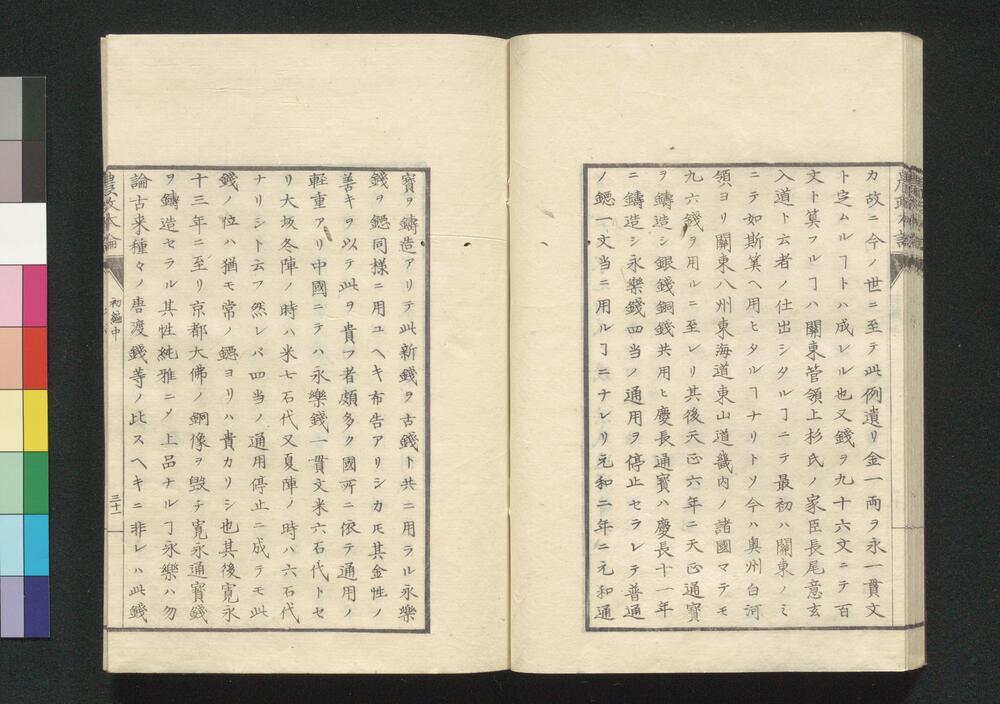 カ故ニ今ノ世ニ至テ此例遺リ金一両ヲ永一貫文
ト定ムルヿトハ成レル也又錢ヲ九十六文ニテ百
文ト筭フルヿハ關東管領上杉氏ノ家臣長尾意玄
入道ト云者ノ仕出シタルヿニテ最初ハ關東ノミ
ニテ如斯筭ヘ用ヒタルヿナリトソ今ハ奥州白河
領ヨリ關東八州東海道東山道畿内ノ諸國マテモ
九六錢ヲ用ルニ至レリ其後天正六年ニ天正通寳
ヲ鑄造シ銀錢銅錢共用ヒ慶長通寳ハ慶長十一年
ニ鑄造シ永樂錢四当ノ通用ヲ停止セラレテ普通
ノ鐚一文当ニ用ルヿニナレリ元和二年ニ元和通
寳ヲ鑄造アリテ此新錢ヲ古錢ト共ニ用ラル永樂
錢ヲ鐚同様ニ用ユヘキ布告アリシカ𪜈其金性ノ
善キヲ以テ此ヲ貴フ者頗多ク國所ニ依テ通用ノ
軽重アリ中國ニテハ永樂錢一貫文米六石代トセ
リ大坂冬陣ノ時ハ米七石代又夏陣ノ時ハ六石代
ナリシト云フ然レバ四当ノ通用停止ニ成テモ此
錢ノ位ハ猶モ常ノ鐚ヨリハ貴カリシ也其後寛永
十三年ニ至リ京都大佛ノ銅像ヲ毀チ寛永通寳錢
ヲ鑄造セラル其性純雅ニ〆上品ナルヿ永樂ハ勿
論古来種々ノ唐渡錢等ノ比スヘキニ非レハ此錢
農政本論
初編中
三十一